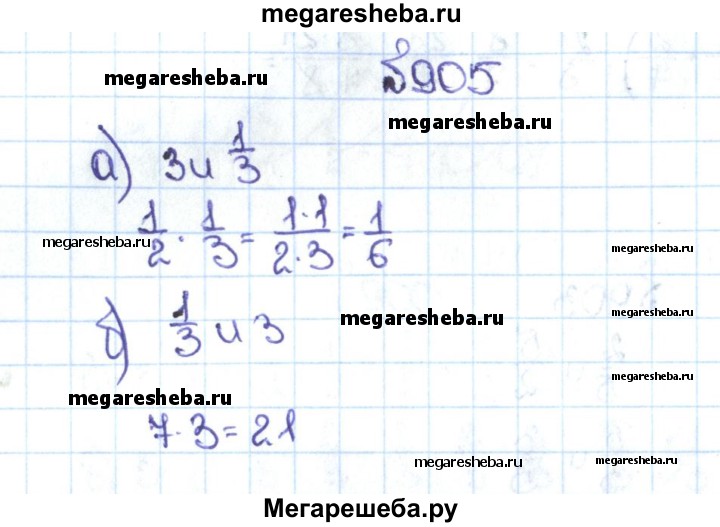 megaresheba.ru
megaresheba.ru
№905
megaresheba.ru
а) 3 и 1/3
1/2 · 1/3 = 1·1/2·3 = 1/6
megaresheba.ru
megaresheba.ru
б) 1/3 и 3
megaresheba.ru
megaresheba.ru
megaresheba.ru
7·3=21
megaresheba.ru
megaresheba.ru
Мегарешеба.ру